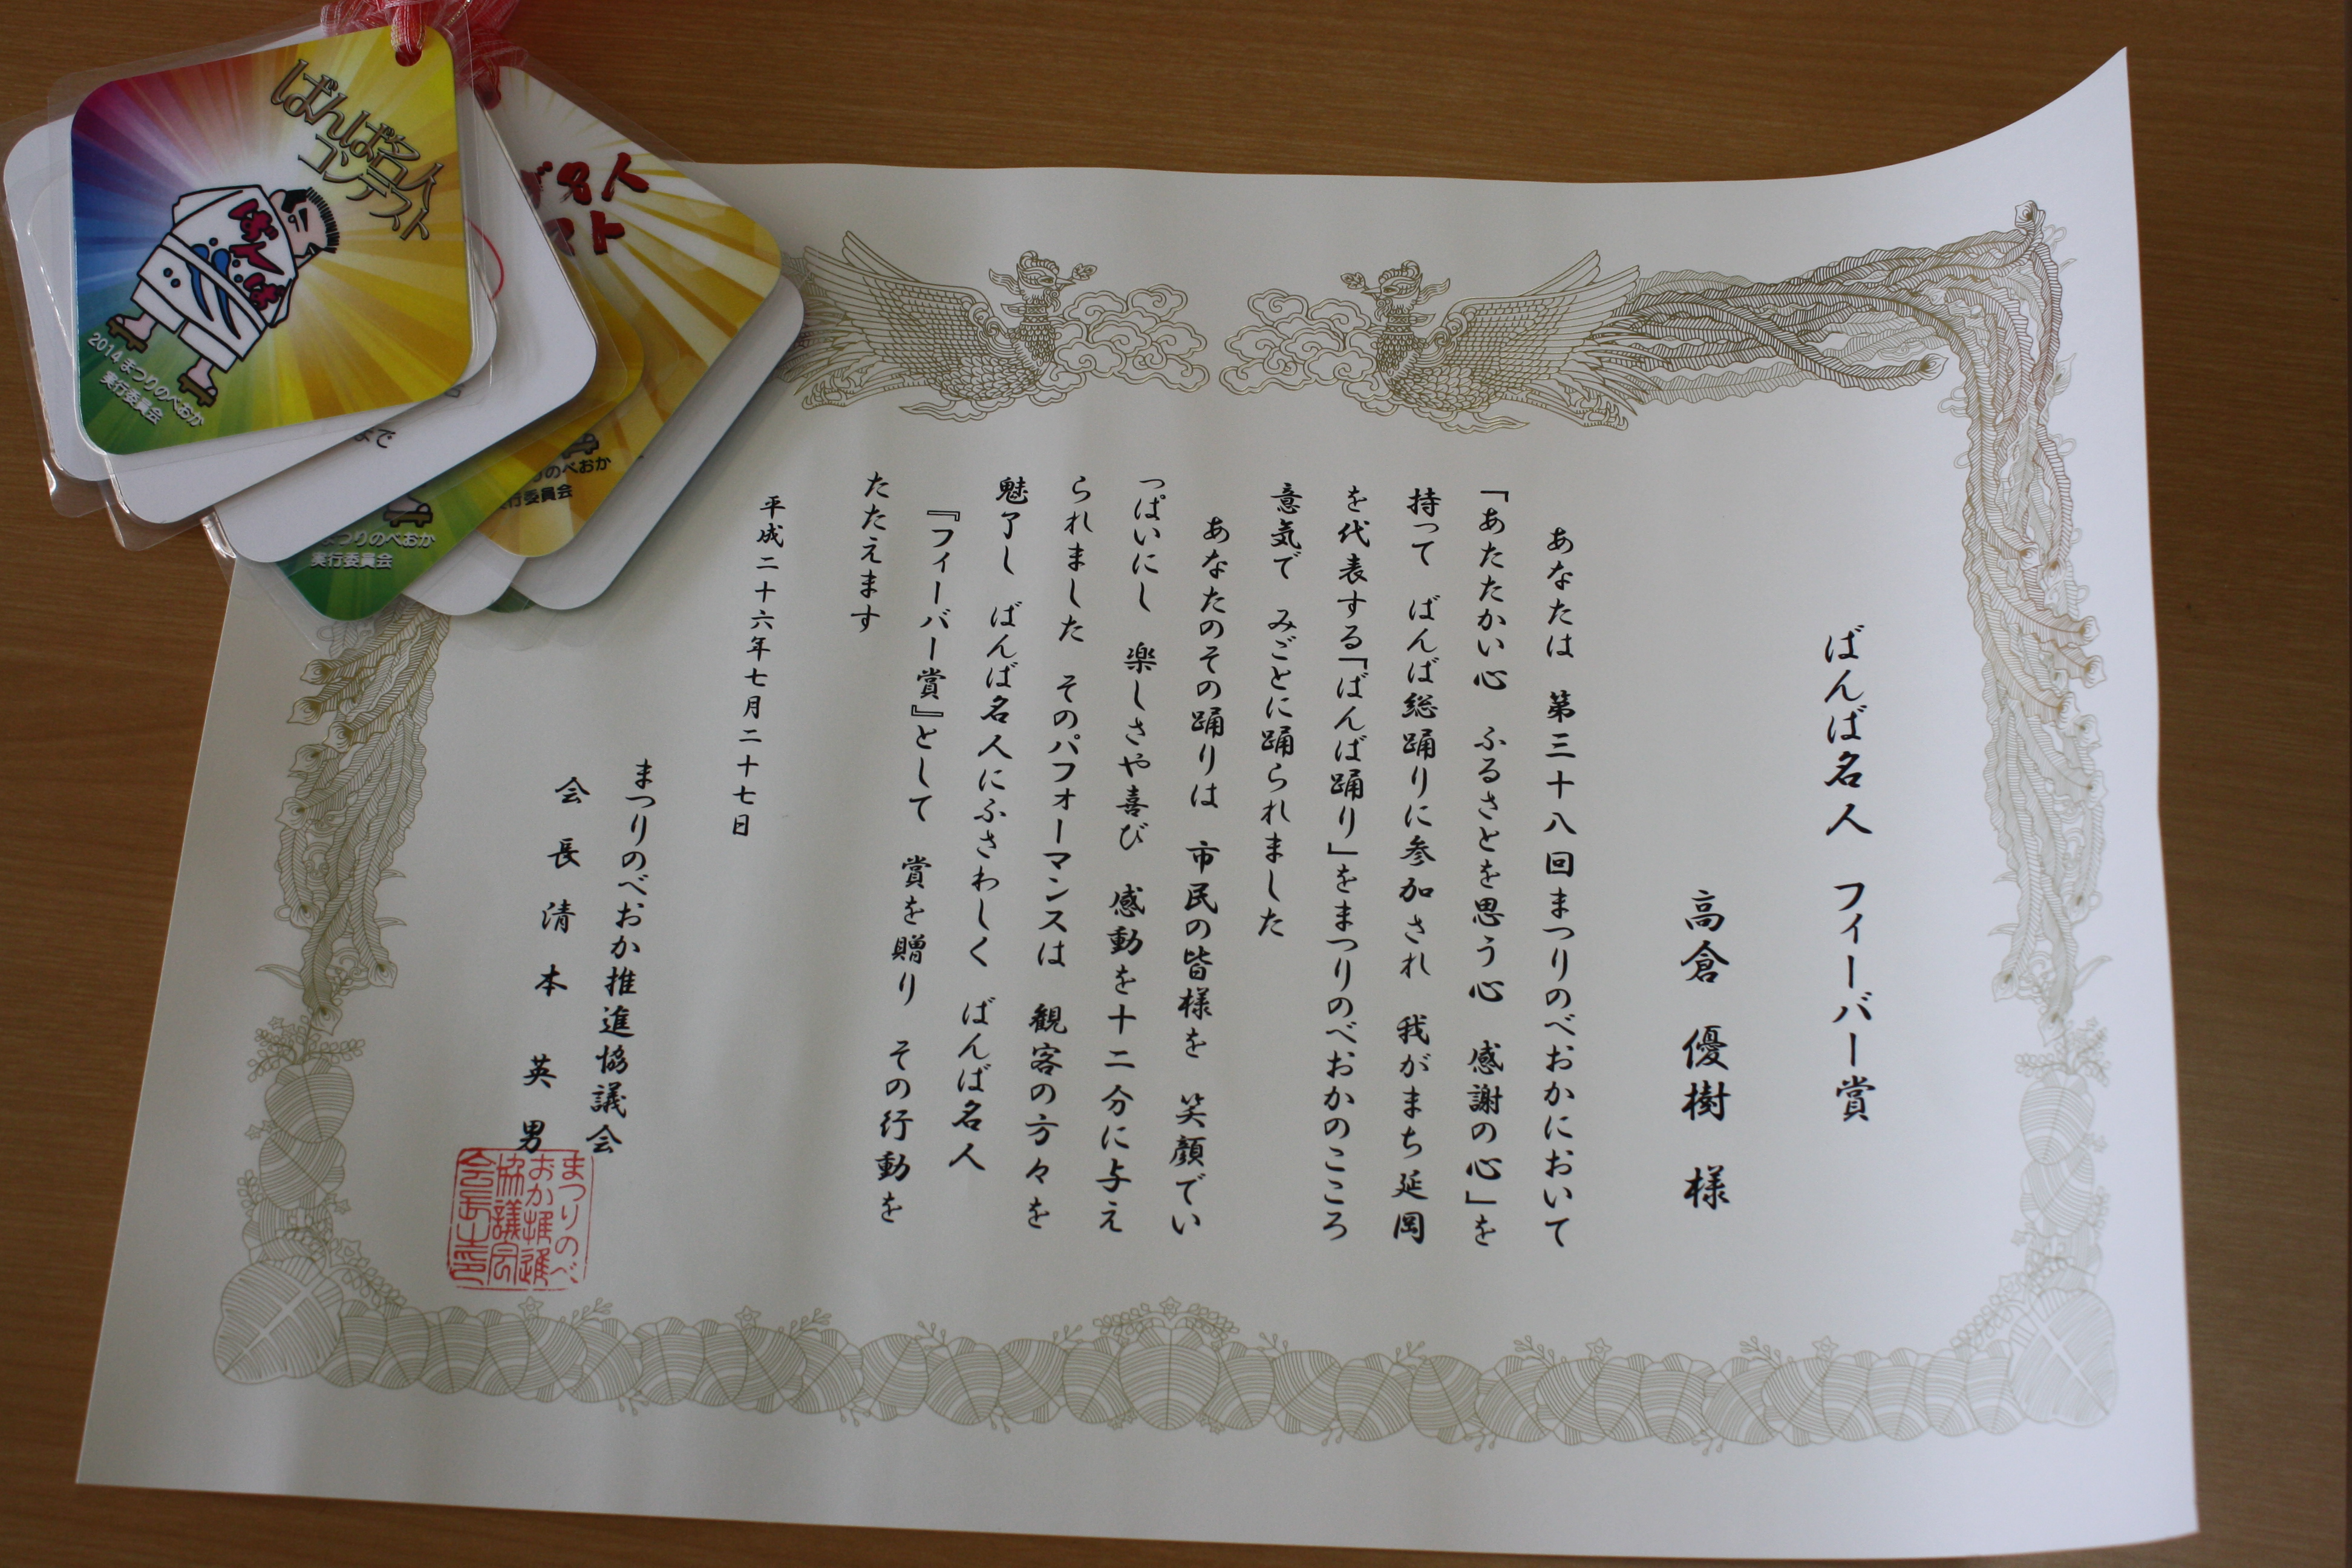 ばんば名人 フィーバー賞
高倉 優樹 様
あなたは 第三十八回まつりのべおかにおいて
「あたたかい心 ふるさとを思う心 感謝の心」を
持って ばんば総踊りに参加され 我がまち延岡
を代表する「ばんば踊り」をまつりのべおかのこころ
意気で みごとに踊られました
あなたのその踊りは 市民の皆様を 笑顔でい
っぱいにし 楽しさや喜び 感動を十二分に与え
られました そのパフォーマンスは 観客の方々を
魅了し ばんば名人にふさわしく ばんば名人
『フィーバー賞』として 賞を贈り その行動を
たたえます
平成二十六年七月二十七日
まつりのべおか推進協議会
会長 清本 英男
まつりのべ
おか推進
協議会
会長之印
ばんば名人
コンテスト
ばんば
2014 まつりのべおか
実行委員会
名人
スト
まで
まつりのべおか
実行委員会
りのべおか
行委員会